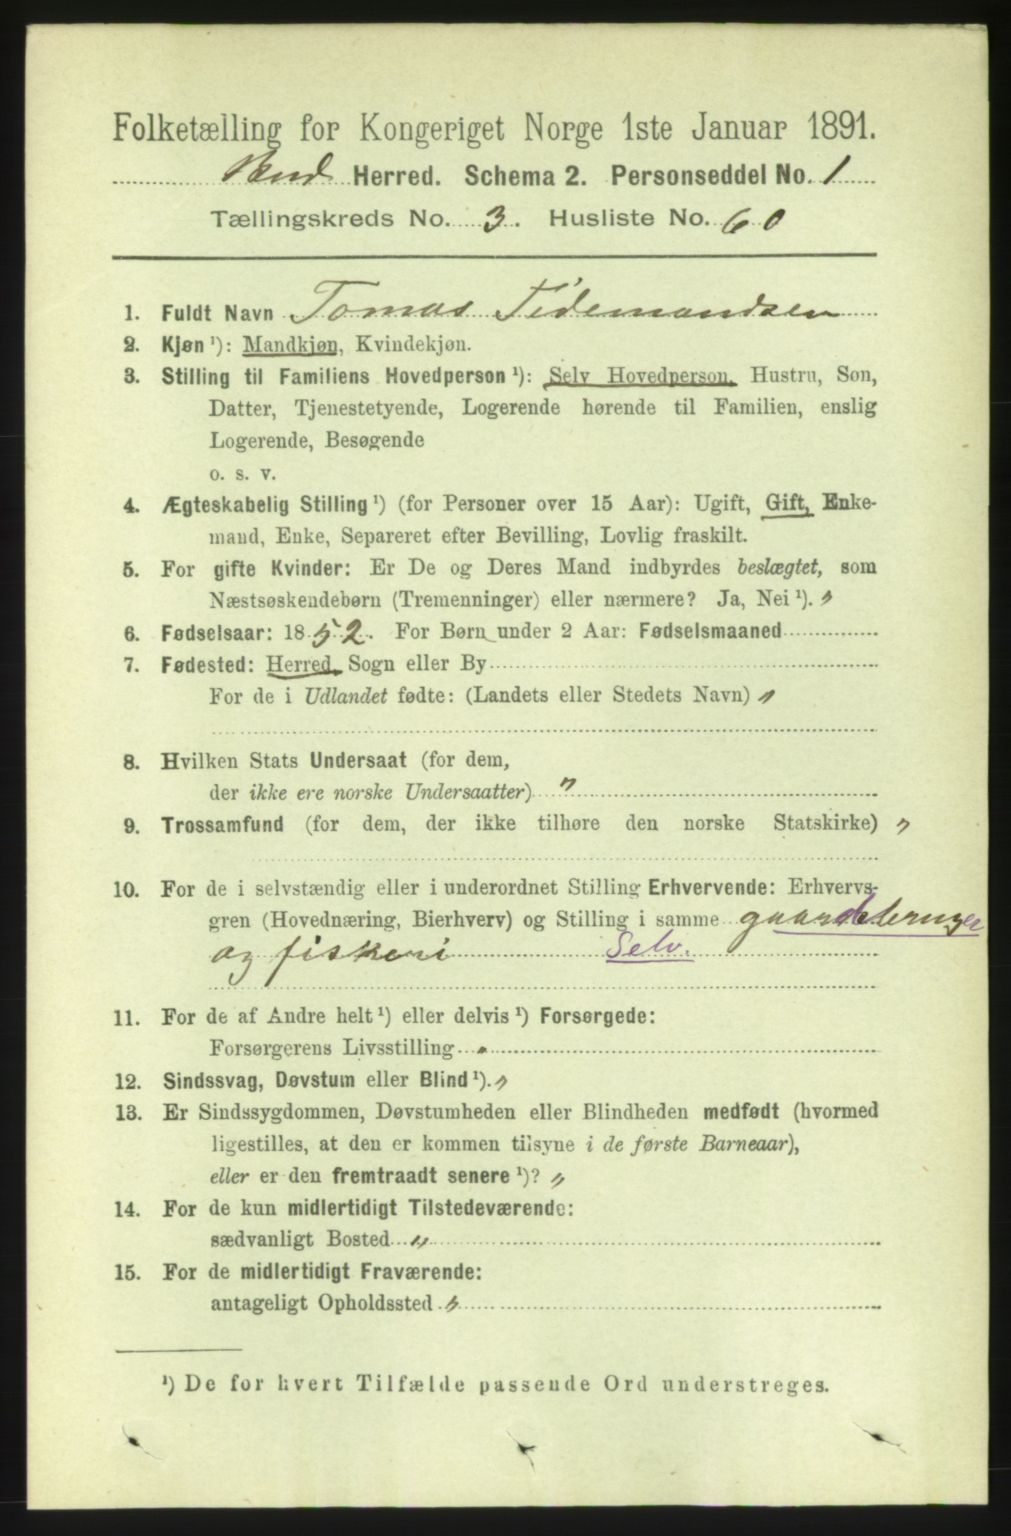 Folketælling for Kongeriget Norge 1ste Januar 1891.
Bud Herred. Schema 2. Personseddel No. 1
Tællingskreds No. 3. Husliste No. 60
1. Fuldt Navn Tomas Tidemandsen
2. Kjøn ¹): Mandkjøn, Kvindekjøn.
3. Stilling til Familiens Hovedperson ¹): Selv Hovedperson, Hustru, Søn,
Datter, Tjenestetyende, Logerende hørende til Familien, enslig
Logerende, Besøgende
o. s. v.
4. Ægteskabelig Stilling ¹) (for Personer over 15 Aar): Ugift, Gift, Enke-
mand, Enke, Separeret efter Bevilling, Lovlig fraskilt.
5. For gifte Kvinder: Er De og Deres Mand indbyrdes beslægtet, som
Næstsøskendebørn (Tremenninger) eller nærmere? Ja, Nei ¹). "
6. Fødselsaar: 1852. For Børn under 2 Aar: Fødselsmaaned
7. Fødested: Herred, Sogn eller By
For de i Udlandet fødte: (Landets eller Stedets Navn) "
8. Hvilken Stats Undersaat (for dem,
der ikke ere norske Undersaatter) "
9. Trossamfund (for dem, der ikke tilhøre den norske Statskirke) "
10. For de i selvstændig eller i underordnet Stilling Erhvervende: Erhvervs-
gren (Hovednæring, Bierhverv) og Stilling i samme
og fiskeri Selv.
11. For de af Andre helt ¹) eller delvis ¹) Forsørgede:
Forsørgerens Livsstilling "
12. Sindssvag, Døvstum eller Blind ¹). "
13. Er Sindssygdommen, Døvstumheden eller Blindheden medfødt (hvormed
ligestilles, at den er kommen tilsyne i de første Barneaar),
eller er den fremtraadt senere ¹)? "
14. For de kun midlertidigt Tilstedeværende:
sædvanligt Bosted "
15. For de midlertidigt Fraværende:
antageligt Opholdssted "
¹) De for hvert Tilfælde passende Ord understreges.